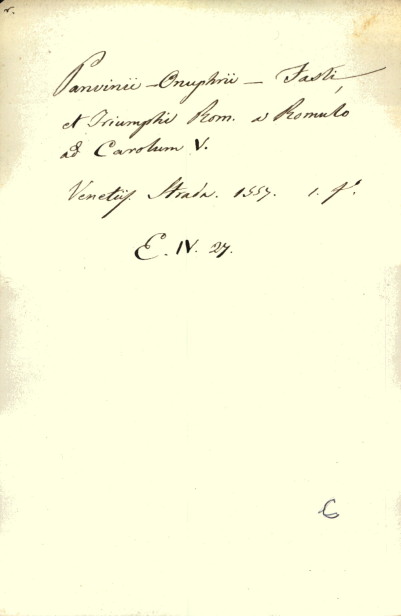 r.
Panvinii - Onuphrii - Fasti,
et Triumphi Rom. a Romulo
ad Carolum V.
Venetiis. Strada. 1557. 1. fº.
E. IV. 27.